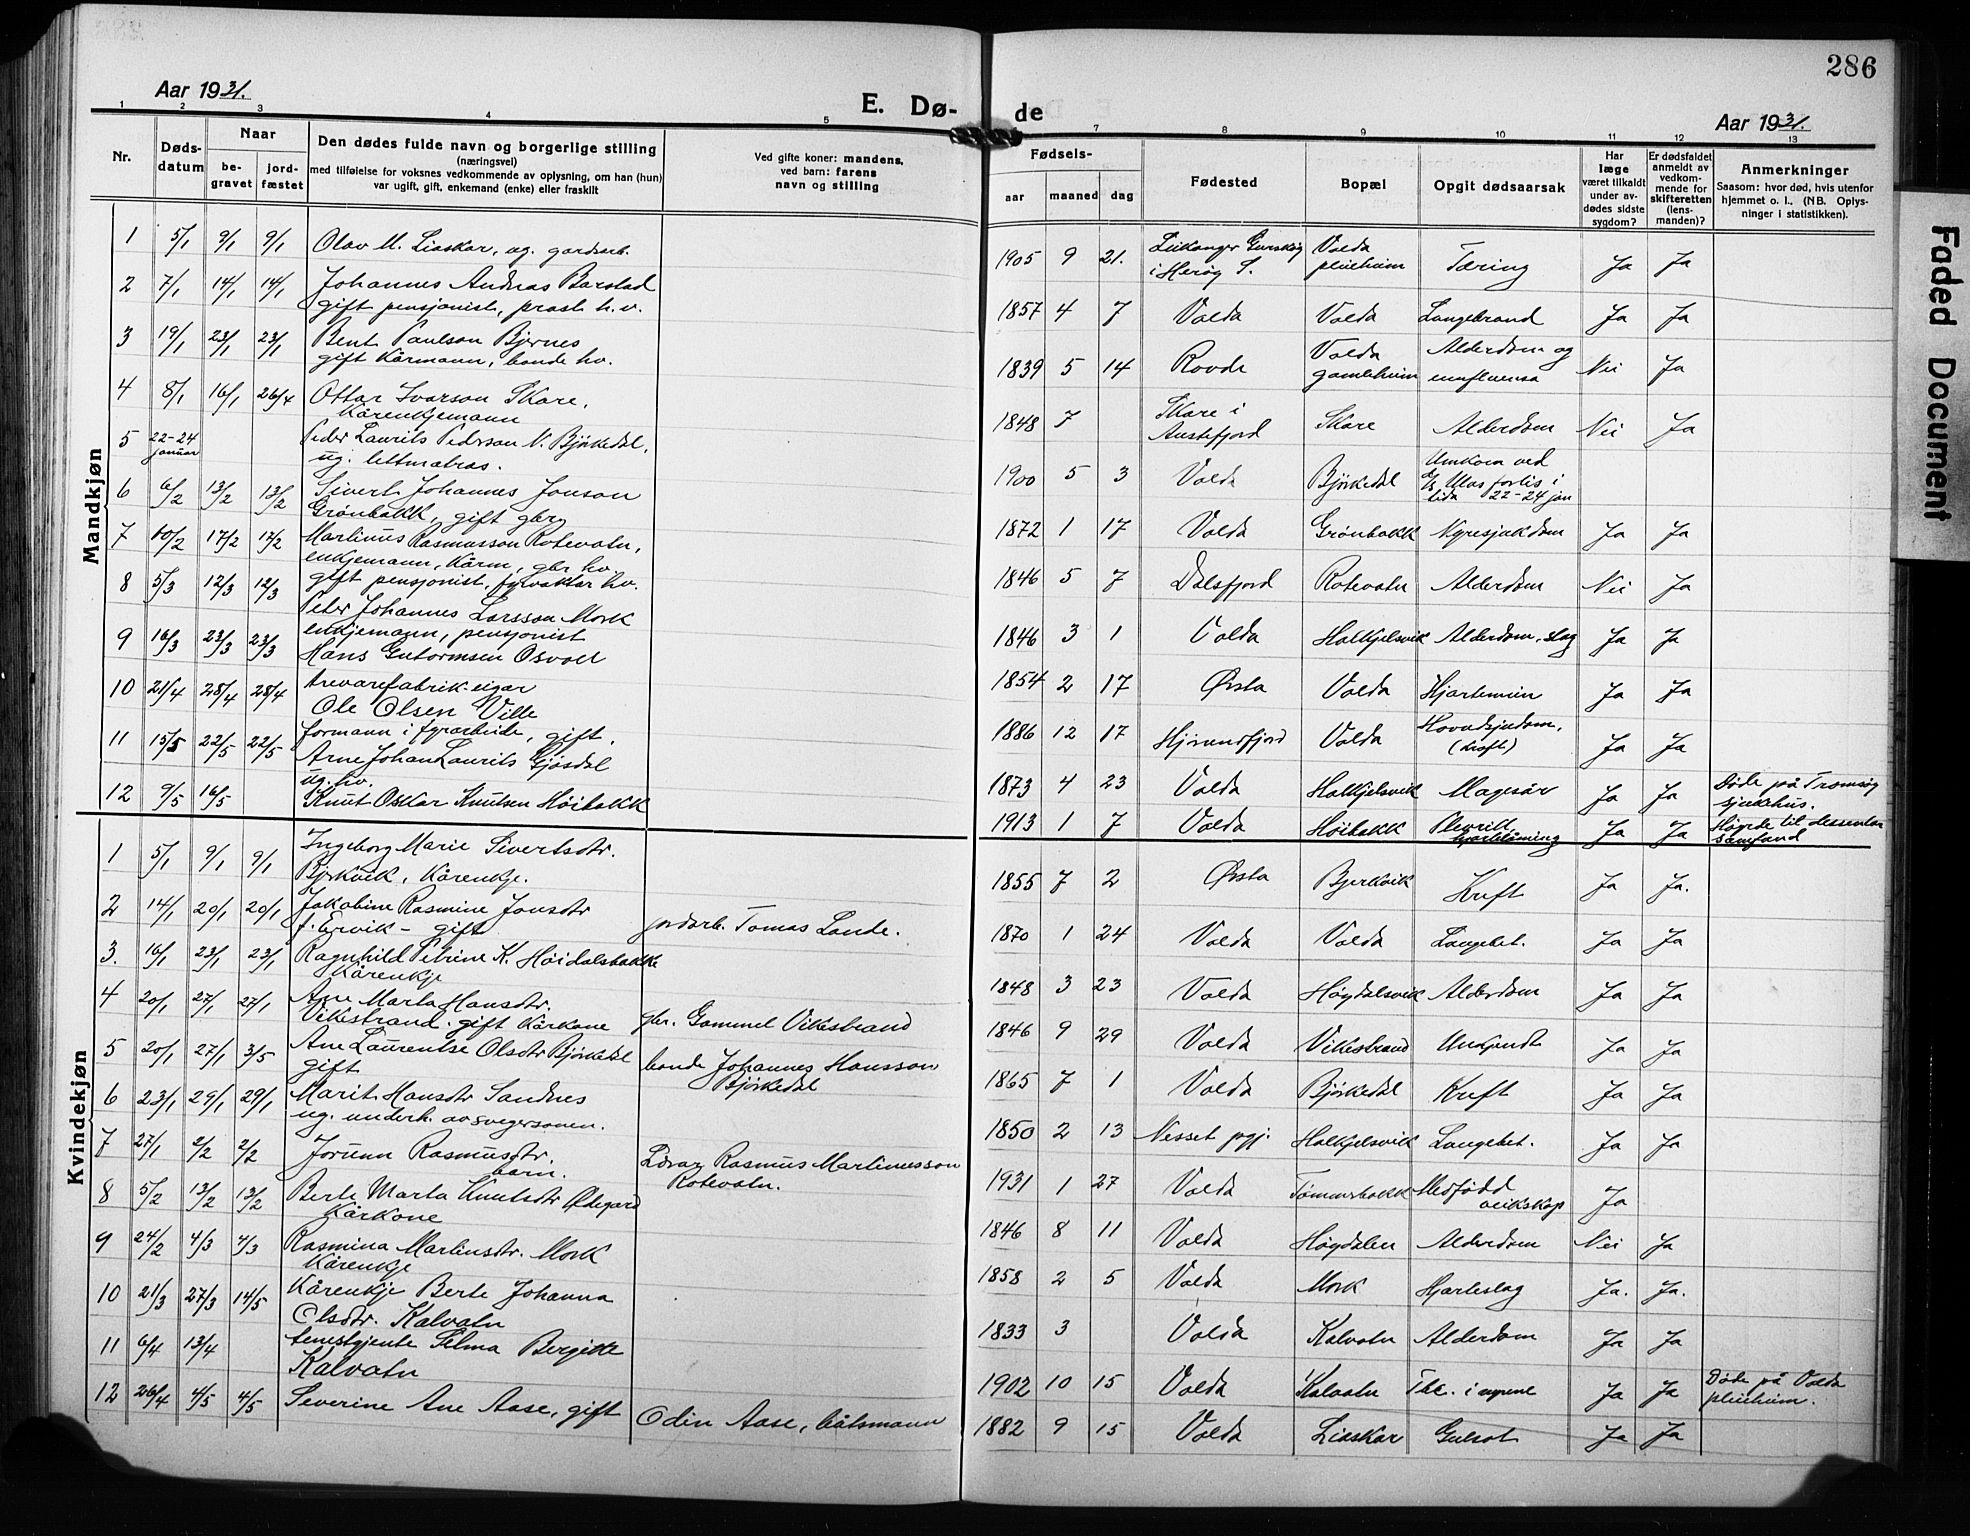 286
Aar 1931.
E. Dø-
de
Aar 1931.
1 2 3 4 5 7 8 9 10 11 12 13
Nr.
Døds-
datum
Naar
be-
gravet
jord-
fæstet
Den dødes fulde navn og borgerlige stilling
(næringsvei)
med tilføielse for voksnes vedkommende av oplysning, om han (hun)
var ugift, gift, enkemand (enke) eller fraskilt
Ved gifte koner: mandens,
ved barn: farens
navn og stilling
Fødsels-
aar maaned dag
Fødested
Bopæl
Opgit dødsaarsak
Har
læge
været tilkaldt
under av-
dødes sidste
sygdom?
Er dødsfaldet
anmeldt av
vedkom-
mende for
skifteretten
(lens-
manden)?
Anmerkninger
Saasom: hvor død, hvis utenfor
hjemmet o. l., (NB. Oplys-
ninger i statistikken).
Mandkjøn
1 5/1 9/1 9/1 Olav M. Liaskar, ug. gardsarb.
1905 9 21. Leikanger Gurskøy
i Herøy S. Volda
pleieheim Tæring Ja Ja
2 7/1 14/1 14/1 Johannes Andras Barstad
gift pensjonist, prost h.v.
1857 4 7 Volda Volda Lungebrand Ja Ja
3 19/1 23/1 23/1 Bent Paulson Bjørnes
gift kårmann, bonde hv.
1839 5 14 Rovde Volda
gamleheim Alderdom og
innfluensa Nei Ja
4 8/1 16/1 26/4 Ottar Ivarson Skare,
kårenkjemann
1848 7 Skare i
Austefjord Skare Alderdom Nei Ja
5 22-24
januar Peder Laurits Pederson N. Bjørkedal,
ug. lettmatros.
1900 5 3 Volda Bjørkedal Umkom ved
d/s Ulvs forlis i
tida 22-24 jan
6 6/2 13/2 13/2 Sivert Johannes Jonson
Grønbakk, gift gbr
1872 1 17 Volda Grønbakk Nyresjukdom Ja Ja
7 10/2 17/2 17/2 Martinus Rasmusson Rotevatn,
enkjemann, kårm, gbr hv.
1846 5 7 Dalsfjord Rotevatn Alderdom Nei Ja
8 5/3 12/3 12/3 gift pensjonist, fyrvaktar hv.
Peter Johannes Larsson Mork
1846 3 1 Volda Halkjelsvik Alderdom, slag Ja Ja
9 16/3 23/3 23/3 enkjemann, pensjonist
Hans Gutormsen Osvoll
1854 2 17 Ørsta Volda Hjartemein Ja Ja
10 21/4 28/4 28/4 trevarefabrik-eigar
Ole Olsen Ville
1886 12 17 Hjørundfjord Volda Hovudsjukdom,
(kreft) Ja Ja
11 15/5 22/5 22/5 formann i fyrarbeide, gift.
Arne Johan Laurits Gjøsdal
1873 4 23 Volda Halkjelsvik Magesår Ja Ja Døde på Tromsøy
sjukehus.
12 9/5 16/5 ug. hv.
Knut Oskar Knutsen Høibakk
1913 1 7 Volda Høibakk Plevritt
hjartelåming Ja Ja Høyrde til dissenter
samfund
Kvindekjøn
1 5/1 9/1 9/1 Ingeborg Marie Sivertsdtr.
Bjørkvik, kårenkje.
1855 7 2 Ørsta Bjerkvik Kreft Ja Ja.
2 14/1 20/1 20/1 Jakobine Rasmine Jonsdtr
f. Ervik - gift jordarb. Tomas Lande.
1870 1 24 Volda Volda Lungebet. Ja Ja
3. 16/1 23/1 23/1 Ragnhild Petrine K. Høidalsbakke
kårenkje
1848 3 23 Volda Høgdalsvik Alderdom Ja Ja
4 20/1 27/1 27/1 Ane Marta Hansdtr.
Vikestrand. gift kårkone gbr. Gammel Vikestrand
1846 9 29 Volda Vikestrand Ukjendt Ja Ja
5 20/1 27/1 3/5 Ane Laurentse Olsdtr Bjørkedal
gift bonde Johannes Hansson
Bjørkedal
1865 7 1 Volda Bjørkedal Kreft Ja Ja
6 23/1 29/1 29/1 Marit Hansdtr Sandnes
ug. underh. av svogersonen.
1850 2 13 Nesset prgj. Halkjelsvik Lungebet. Ja Ja
7 27/1 2/2 2/2 Jorunn Rasmusdtr.
barn. Lærar Rasmus Martinusson
Rotevatn.
1931 1 27 Volda Tømmerbakk Medfødd
veikskap Ja
8 5/2 13/2 13/2 Berte Marta Knutsdtr Ødegard
kårkone
1846 8 11 Volda Høgdalen Alderdom Nei Ja
9 24/2 4/3 4/3 Rasmina Martinsdtr. Mork
kårenkje
1858 2 5 Volda Mork Hjarteslag Ja. Ja.
10 21/3 27/3 14/5 Kårenkje Berte Johanna
Olsdtr. Kalvatn
1833 3 Volda Kalvatn Alderdom Ja Ja
11 6/4 13/4 tenestgjente Selma Bergitte
Kalvatn
1902 10 15 Volda Kalvatn Tbc. i nyrene Ja Ja Døde på Volda
pleieheim.
12 26/4 4/5 4/5 Severine Ane Aase, gift Odin Aase, båtsmann
1882 9 15 Volda Liaskar Gulsot Ja Ja
Faded Document